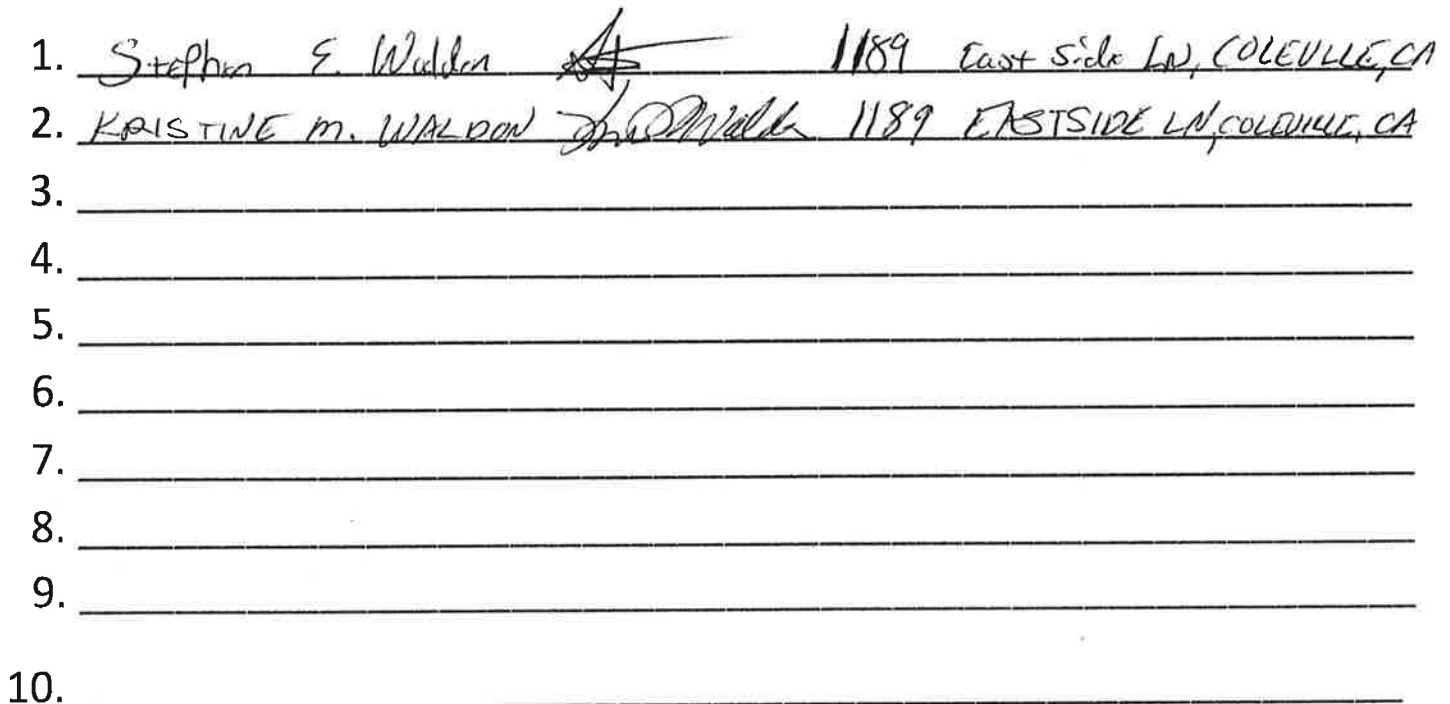 1. Stephen E. Waldon 1189 East Side LN, COLEVILLE, CA
2. KRISTINE M. WALDON 1189 EASTSIDE LN, COLEVILLE, CA
3.
4.
5.
6.
7.
8.
9.
10.